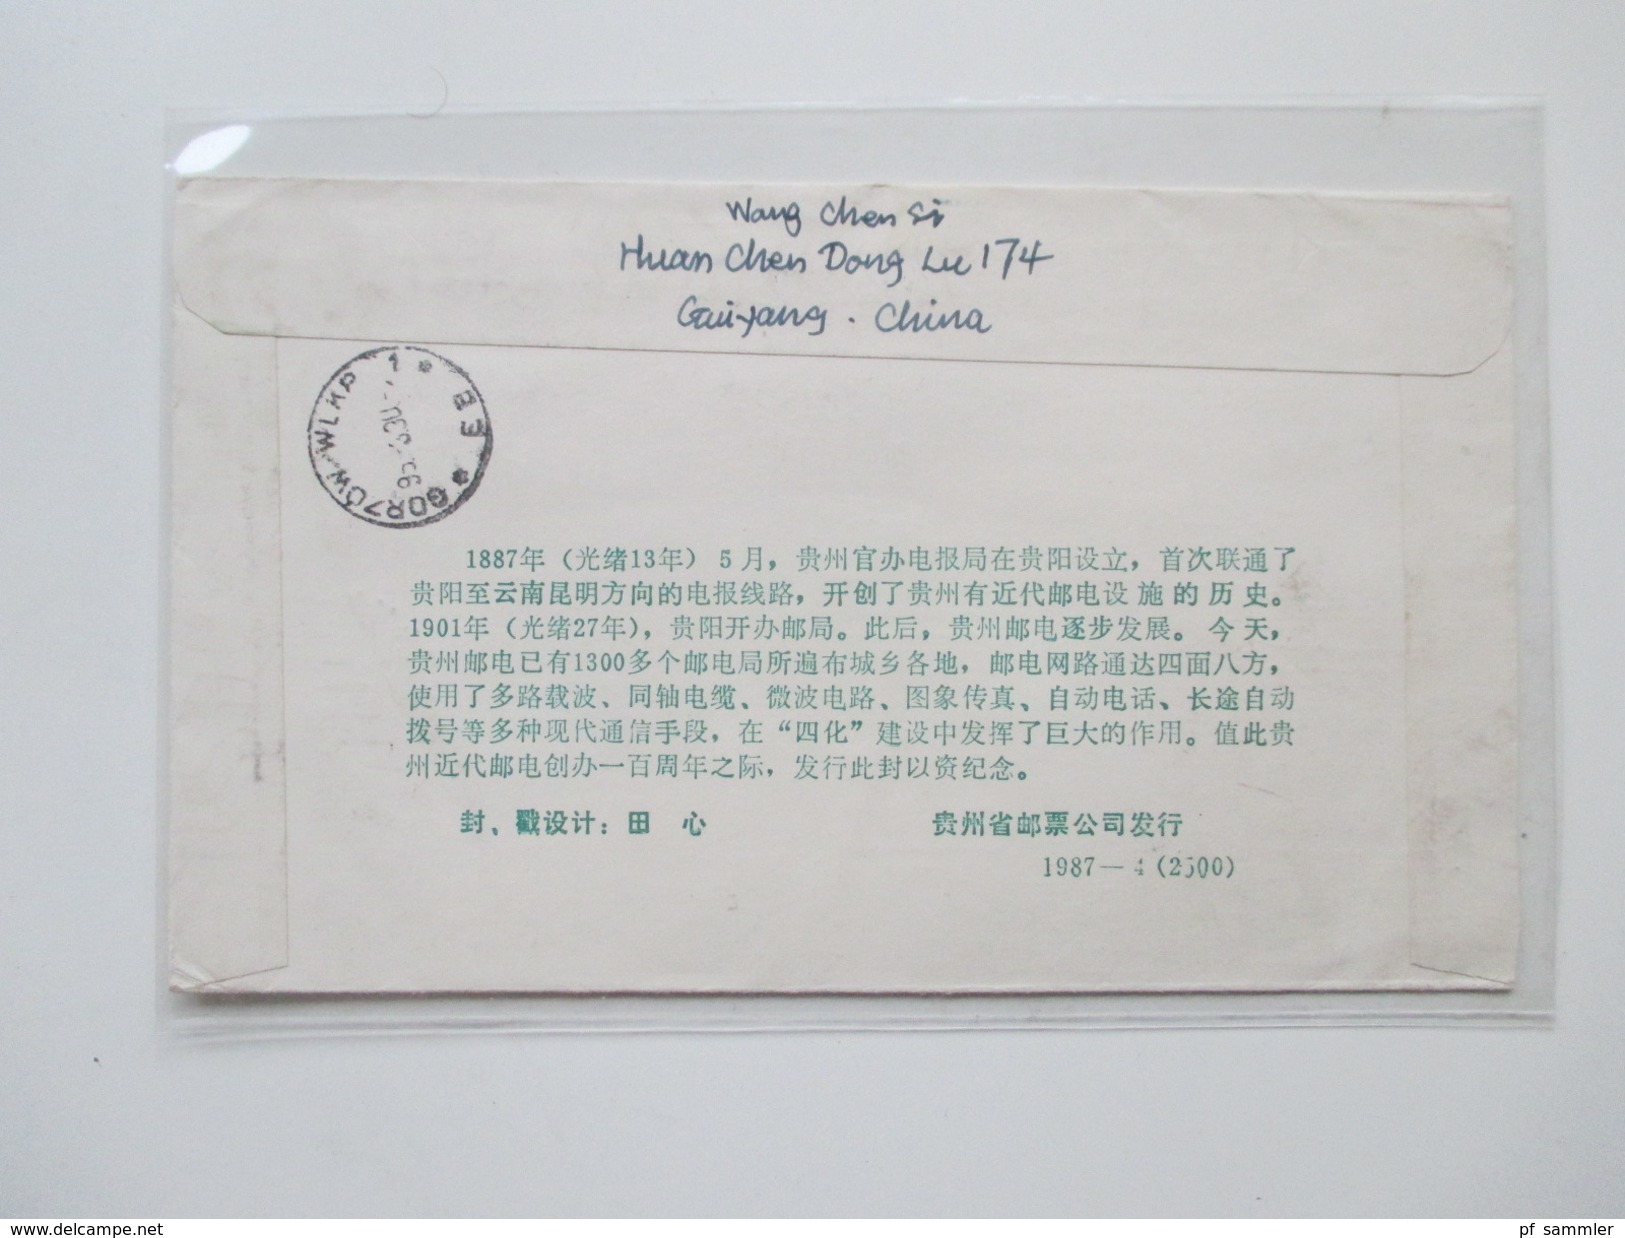 Wang Chen Si
Huan Chen Dong Lu 174
Guiyang . China
GORZÓW WLKP 1
1887年（光绪13年）5月，贵州官办电报局在贵阳设立，首次联通了
贵阳至云南昆明方向的电报线路，开创了贵州有近代邮电设施的历史。
1901年（光绪27年），贵阳开办邮局。此后，贵州邮电逐步发展。今天，
贵州邮电已有1300多个邮电局所遍布城乡各地，邮电网路通达四面八方，
使用了多路载波、同轴电缆、微波电路、图象传真、自动电话、长途自动
拨号等多种现代通信手段，在“四化”建设中发挥了巨大的作用。值此贵
州近代邮电创办一百周年之际，发行此封以资纪念。
封、戳设计：田　心
贵州省邮票公司发行
1987—4(2500)
www.delcampe.net
pf_sammler